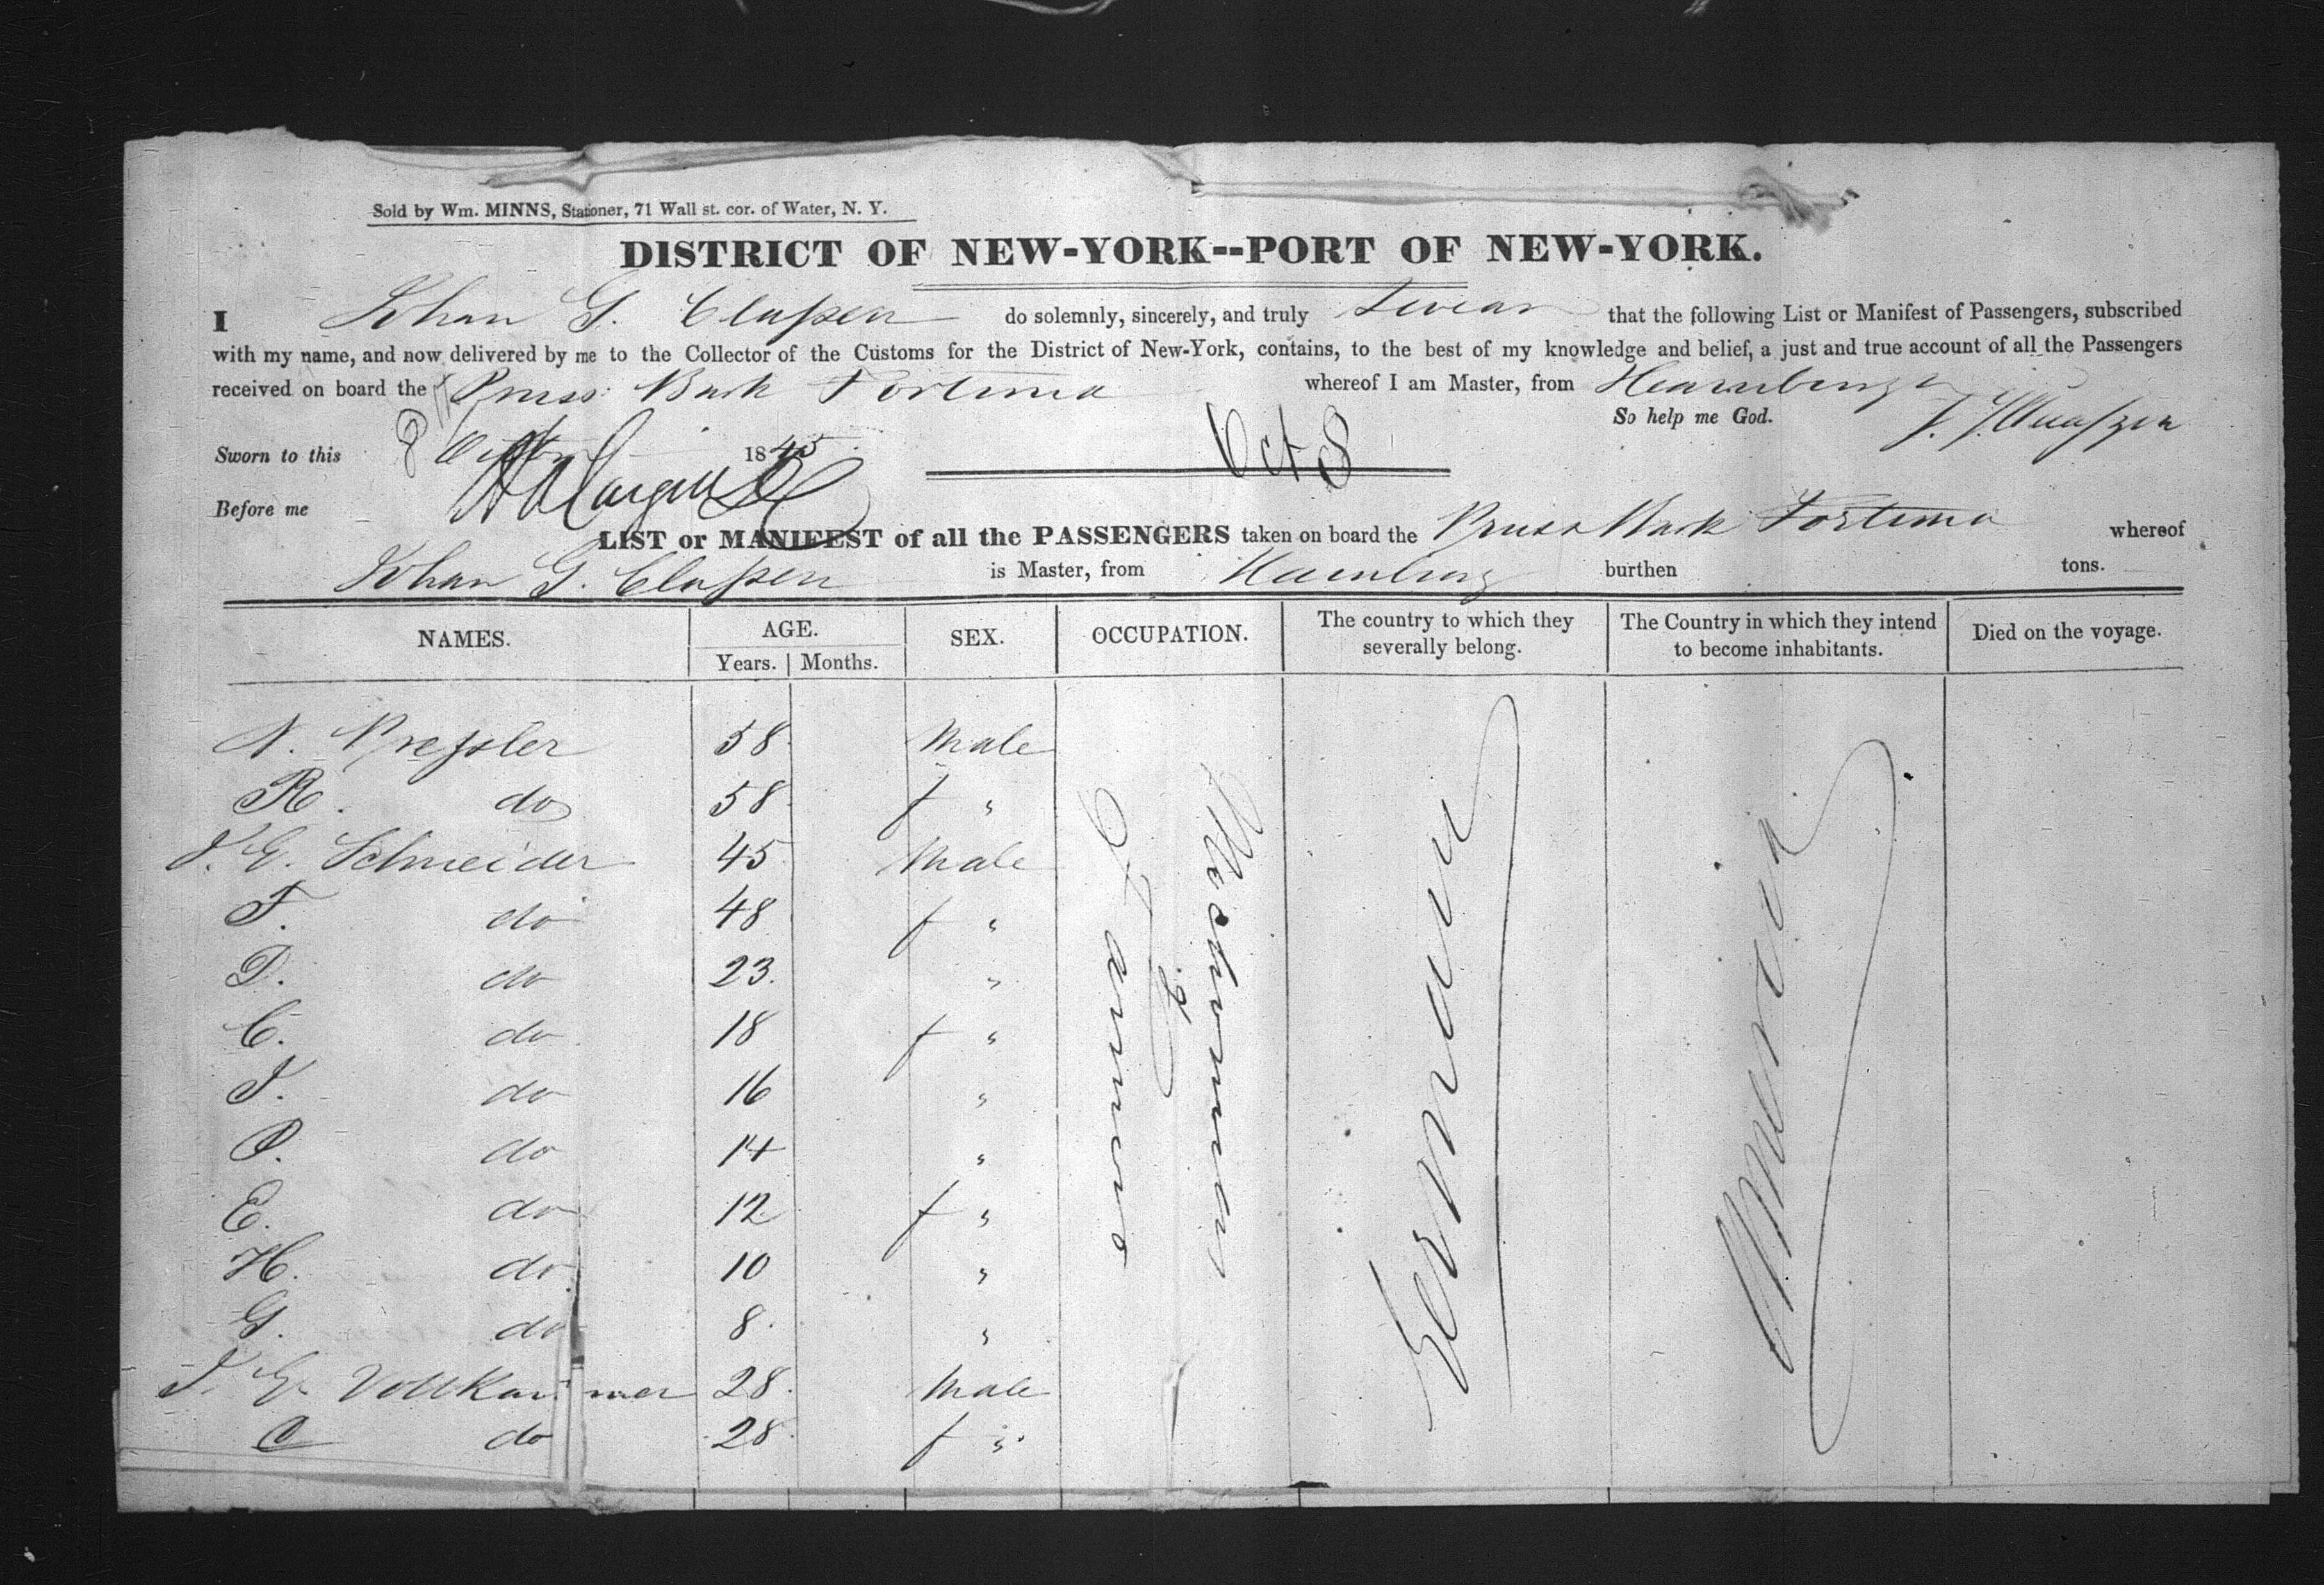 Sold by Wm. MINNS, Stationer, 71 Wall st. cor. of Water, N. Y.
DISTRICT OF NEW-YORK--PORT OF NEW-YORK.
I Johan G. Claſsen do solemnly, sincerely, and truly Swear that the following List or Manifest of Passengers, subscribed
with my name, and now delivered by me to the Collector of the Customs for the District of New-York, contains, to the best of my knowledge and belief, a just and true account of all the Passengers
received on board the Pruss Bark Fortuna whereof I am Master, from Hamburg
So help me God.
Sworn to this 8 1845
Oct 8
Before me
LIST or MANIFEST of all the PASSENGERS taken on board the Pruss Bark Fortuna whereof
Johan G. Claſsen is Master, from Hamburg burthen tons.
NAMES. AGE. SEX. OCCUPATION. The country to which they severally belong. The Country in which they intend to become inhabitants. Died on the voyage.
Years. Months.
N. Preſsler 58 Male
R. do 58 f "
J. G. Schneider 45 Male
F. do 48 f "
D. do 23. "
C. do 18 f "
J. do 16 "
P. do 14 "
E. do 12 f "
H. do 10 "
G. do 8. "
J. G. Vollkammer 28. Male
C do 28. f "
Farmers &
Workman
Germany
America